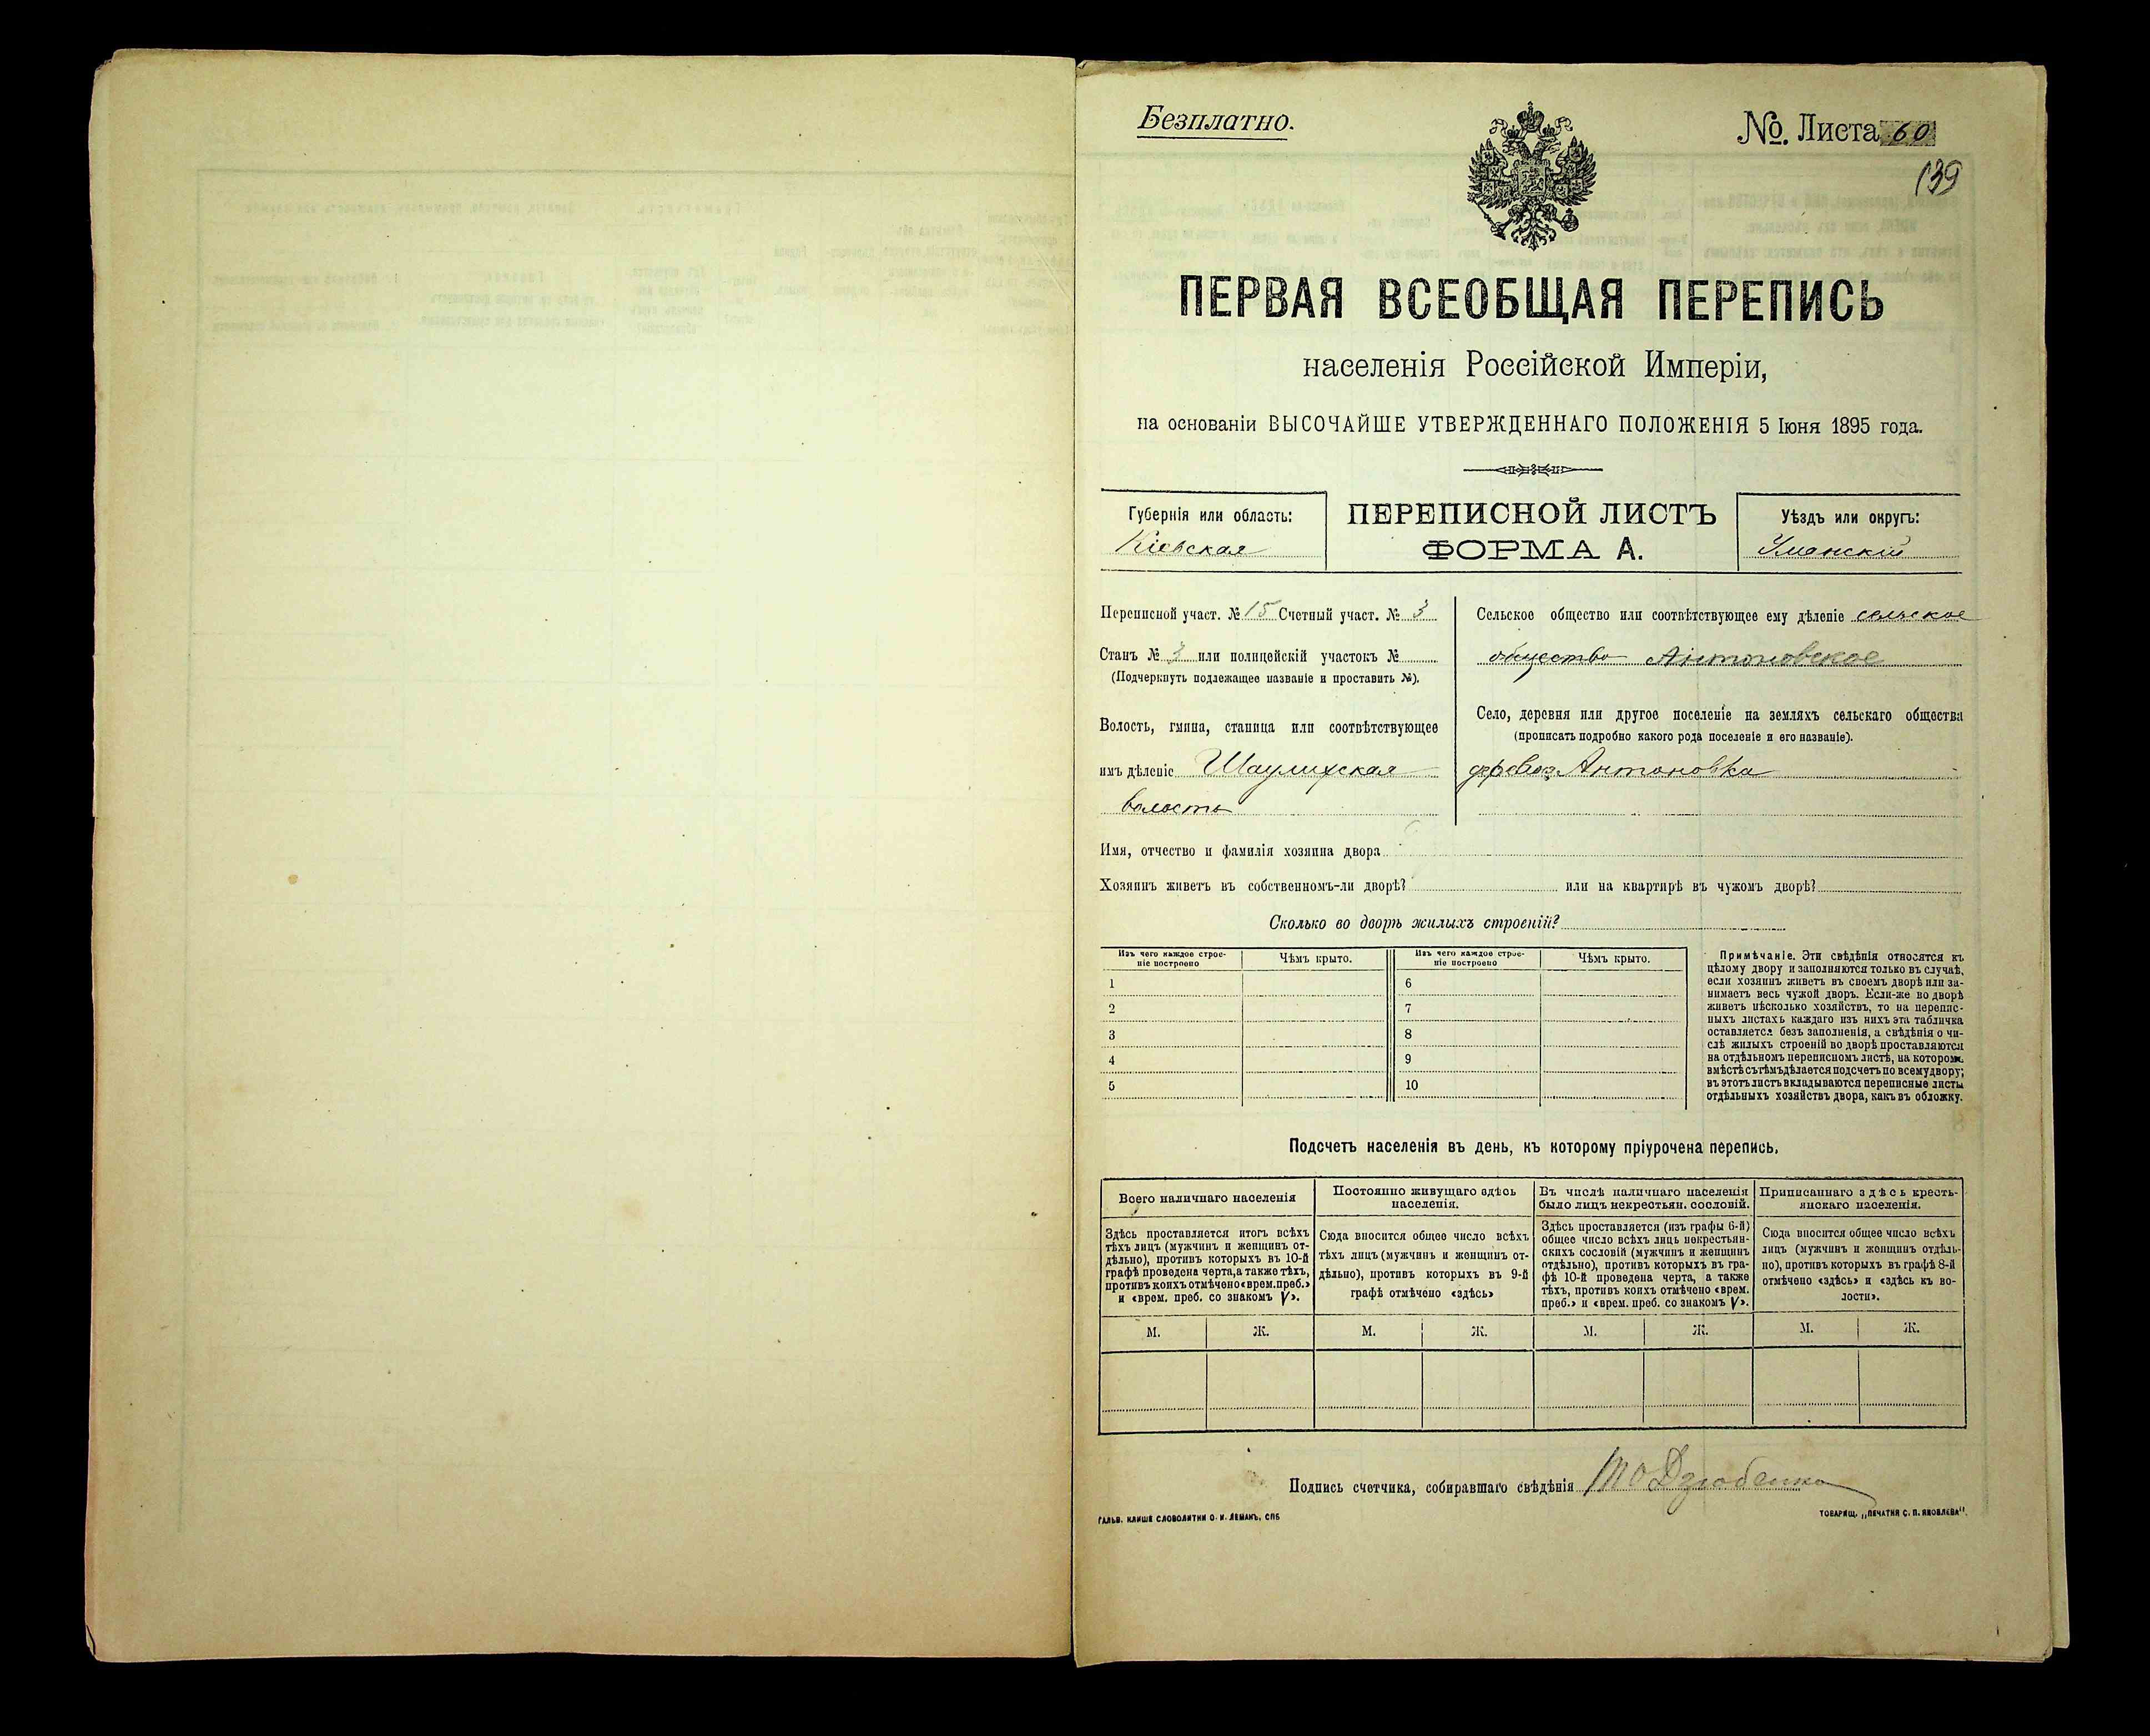 Безплатно.
№. Листа 60
139
ПЕРВАЯ ВСЕОБЩАЯ ПЕРЕПИСЬ
населенія Россійской Имперіи,
на основаніи ВЫСОЧАЙШЕ УТВЕРЖДЕННАГО ПОЛОЖЕНІЯ 5 Іюня 1895 года.
Губернія или область:
Кіевская
ПЕРЕПИСНОЙ ЛИСТЪ
ФОРМА А.
Уѣздъ или округъ:
Уманскій
Переписной участ. № 15 Счетный участ. № 3
Станъ № 3 или полицейскій участокъ №
(Подчеркнуть подлежащее названіе и проставить №).
Волость, гмина, станица или соотвѣтствующее
имъ дѣленіе Шаулихская
волость
Сельское общество или соотвѣтствующее ему дѣленіе сельское
общество Антоновское
Село, деревня или другое поселеніе на земляхъ сельскаго общества
(прописать подробно какого рода поселеніе и его названіе).
Антоновка
Имя, отчество и фамилія хозяина двора
Хозяинъ живетъ въ собственномъ-ли дворѣ? или на квартирѣ въ чужомъ дворѣ?
Сколько во дворѣ жилыхъ строеній?
Изъ чего каждое строе-
ніе построено
Чѣмъ крыто.
Изъ чего каждое строе-
ніе построено
Чѣмъ крыто.
1 6
2 7
3 8
4 9
5 10
Примѣчаніе. Эти свѣдѣнія относятся къ
цѣлому двору и заполняются только въ случаѣ,
если хозяинъ живетъ въ своемъ дворѣ или за-
нимаетъ весь чужой дворъ. Если-же во дворѣ
живетъ нѣсколько хозяйствъ, то на перепис-
ныхъ листахъ каждаго изъ нихъ эта табличка
оставляется безъ заполненія, а свѣдѣнія о чи-
слѣ жилыхъ строеній во дворѣ проставляются
на отдѣльномъ переписномъ листѣ, на которомъ
вмѣстѣ съ тѣмъ дѣлается подсчетъ по всему двору;
въ этотъ листъ вкладываются переписные листы
отдѣльныхъ хозяйствъ двора, какъ въ обложку.
Подсчетъ населенія въ день, къ которому пріурочена перепись.
Всего наличнаго населенія
Здѣсь проставляется итогъ всѣхъ
тѣхъ лицъ (мужчинъ и женщинъ от-
дѣльно), противъ которыхъ въ 10-й
графѣ проведена черта, а также тѣхъ,
противъ коихъ отмѣчено «врем. преб.»
и «врем. преб. со знакомъ V».
Постоянно живущаго здѣсь
населенія.
Сюда вносится общее число всѣхъ
тѣхъ лицъ (мужчинъ и женщинъ от-
дѣльно), противъ которыхъ въ 9-й
графѣ отмѣчено «здѣсь»
Въ числѣ наличнаго населенія
было лицъ некрестьян. сословій.
Здѣсь проставляется (изъ графы 6-й)
общее число всѣхъ лицъ некрестьян-
скихъ сословій (мужчинъ и женщинъ
отдѣльно), противъ которыхъ въ гра-
фѣ 10-й проведена черта, а также
тѣхъ, противъ коихъ отмѣчено «врем.
преб.» и «врем. преб. со знакомъ V».
Приписаннаго здѣсь кресть-
янскаго населенія.
Сюда вносится общее число всѣхъ
лицъ (мужчинъ и женщинъ отдѣль-
но), противъ которыхъ въ графѣ 8-й
отмѣчено «здѣсь» и «здѣсь къ во-
лости».
М. Ж. М. Ж. М. Ж. М. Ж.
Подпись счетчика, собиравшаго свѣдѣнія Дзюбенко
ГАЛЬВ. КЛИШЕ СЛОВОЛИТНИ О. И. ЛЕМАНЪ, СПБ
ТОВАРИЩ. „ПЕЧАТНЯ С. П. ЯКОВЛЕВА".